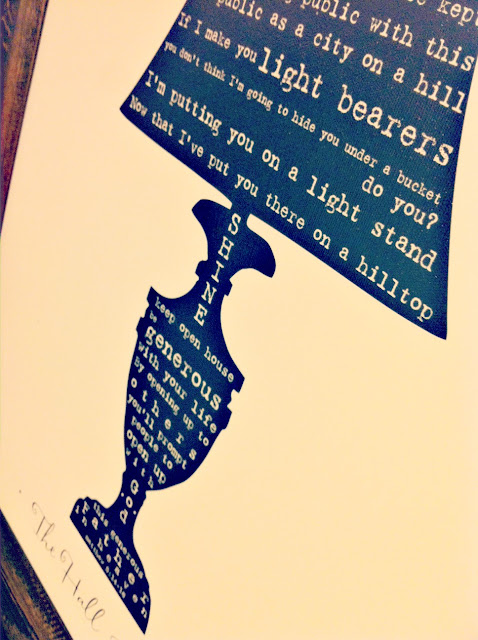 kept
public with this
public as a city on a hill
If I make you light bearers
you don't think I'm going to hide you under a bucket
do you?
I'm putting you on a light stand
Now that I've put you there on a hilltop
SHINE
keep open house
be
generous
with your life
By opening up to
others
you'll prompt
people to
open up
with
God
this generous
Father
in heaven
The Hall